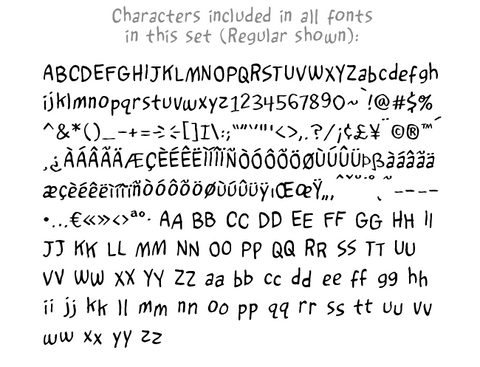 Characters included in all fonts
in this set (Regular shown):
ABCDEFGHIJKLMNOPQRSTUVWXYZabcdefgh
ijklmnopqrstuvwxyz1234567890~`!@#$%
^&*()_-+=÷[]I\:;"""''<>,.?/¡¢£¥¨©®™´
¸¿ÀÁÂÃÄÆÇÈÉÊËÌÍÎÏÑÒÓÔÕÖØÙÚÛÜÞßàáâãä
æçèéêëìíîïñòóôõöøùúûüÿıŒœŸ„‚ˆˇ˘˙˚˛˜----
•…€«»‹›ªº· AA BB CC DD EE FF GG HH II
JJ KK LL MM NN OO PP QQ RR SS TT UU
VV WW XX YY ZZ aa bb cc dd ee ff gg hh
ii jj kk ll mm nn oo pp qq rr ss tt uu vv
ww xx yy zz